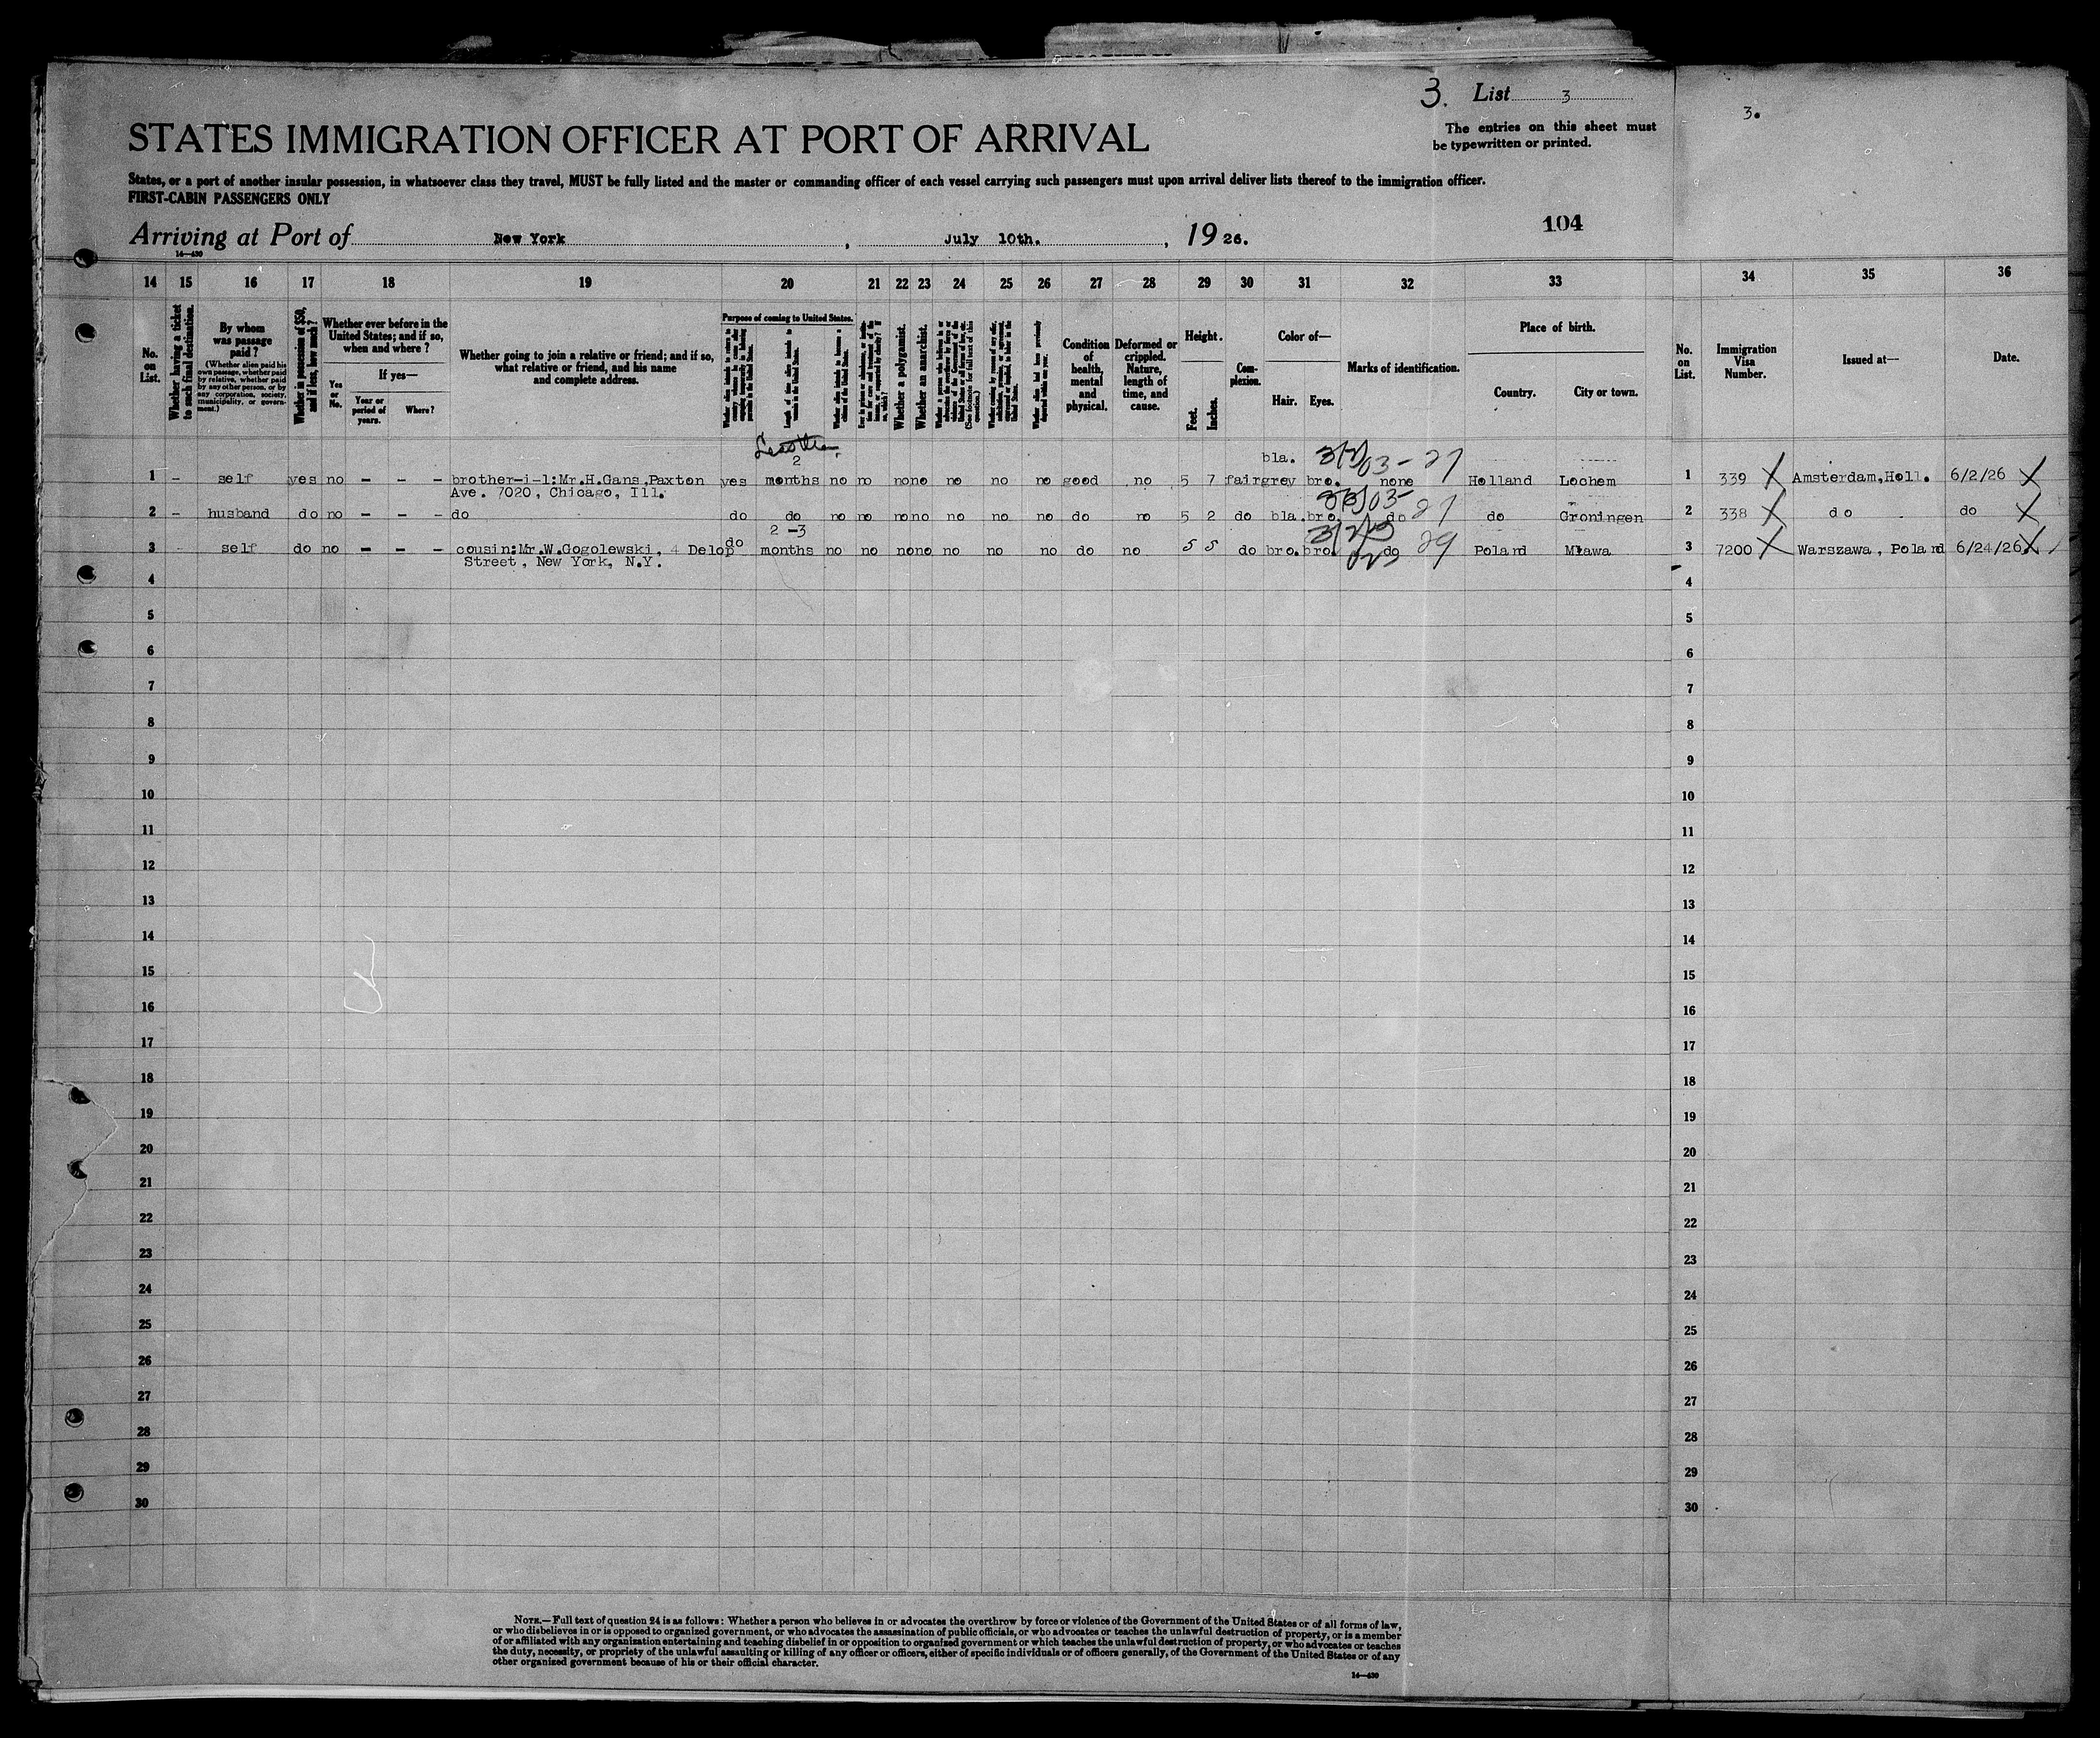 3. List 3
3.
STATES IMMIGRATION OFFICER AT PORT OF ARRIVAL
The entries on this sheet must
be typewritten or printed.
States, or a port of another insular possession, in whatsoever class they travel, MUST be fully listed and the master or commanding officer of each vessel carrying such passengers must upon arrival deliver lists thereof to the immigration officer.
FIRST-CABIN PASSENGERS ONLY
104
Arriving at Port of New York, July 10th., 1926.
14—430
14 15 16 17 18 19 20 21 22 23 24 25 26 27 28 29 30 31 32 33 34 35 36
No. on List.
Whether having a ticket to such final destination.
By whom was passage paid?
(Whether alien paid his own passage, whether paid by relative, whether paid by any other person, or by any corporation, society, municipality, or government.)
Whether in possession of $50, and if less, how much?
Whether ever before in the United States; and if so, when and where?
Yes or No.
If yes—
Year or period of years.
Where?
Whether going to join a relative or friend; and if so, what relative or friend, and his name and complete address.
Purpose of coming to United States.
Length of time alien intends to remain in the United States.
Whether alien intends to become a citizen of the United States.
Whether a polygamist.
Whether an anarchist.
Condition of health, mental and physical.
Deformed or crippled. Nature, length of time, and cause.
Height.
Feet.
Inches.
Complexion.
Color of—
Hair.
Eyes.
Marks of identification.
Place of birth.
Country.
City or town.
No. on List.
Immigration Visa Number.
Issued at—
Date.
2 bla.
1 - self yes no - - - brother-i-l:Mr.H.Gans,Paxton yes months no no no no no no no good no 5 7 fair grey bro. none Holland Lochem 1 339 X Amsterdam,Holl. 6/2/26 X
Ave. 7020, Chicago, Ill.
2 - husband do no - - - do do do no no no no no no no do no 5 2 do bla. bro. do do Groningen 2 338 X do do X
2 -3
3 self do no - - - cousin:Mr.W.Gogolewski, 4 Delop do months no no no no no no no do no 5 5 do bro. bro. do Poland Mława 3 7200 X Warszawa, Poland 6/24/26 X
Street, New York, N.Y.
4 4
5 5
6 6
7 7
8 8
9 9
10 10
11 11
12 12
13 13
14 14
15 15
16 16
17 17
18 18
19 19
20 20
21 21
22 22
23 23
24 24
25 25
26 26
27 27
28 28
29 29
30 30
NOTE.—Full text of question 24 is as follows: Whether a person who believes in or advocates the overthrow by force or violence of the Government of the United States or of all forms of law,
or who disbelieves in or is opposed to organized government, or who advocates the assassination of public officials, or who advocates or teaches the unlawful destruction of property, or is a member
of or affiliated with any organization entertaining and teaching disbelief in or opposition to organized government or which teaches the unlawful destruction of property, or who advocates or teaches
the duty, necessity, or propriety of the unlawful assaulting or killing of any officer or officers, either of specific individuals or of officers generally, of the Government of the United States or of any
other organized government because of his or their official character.
14—430